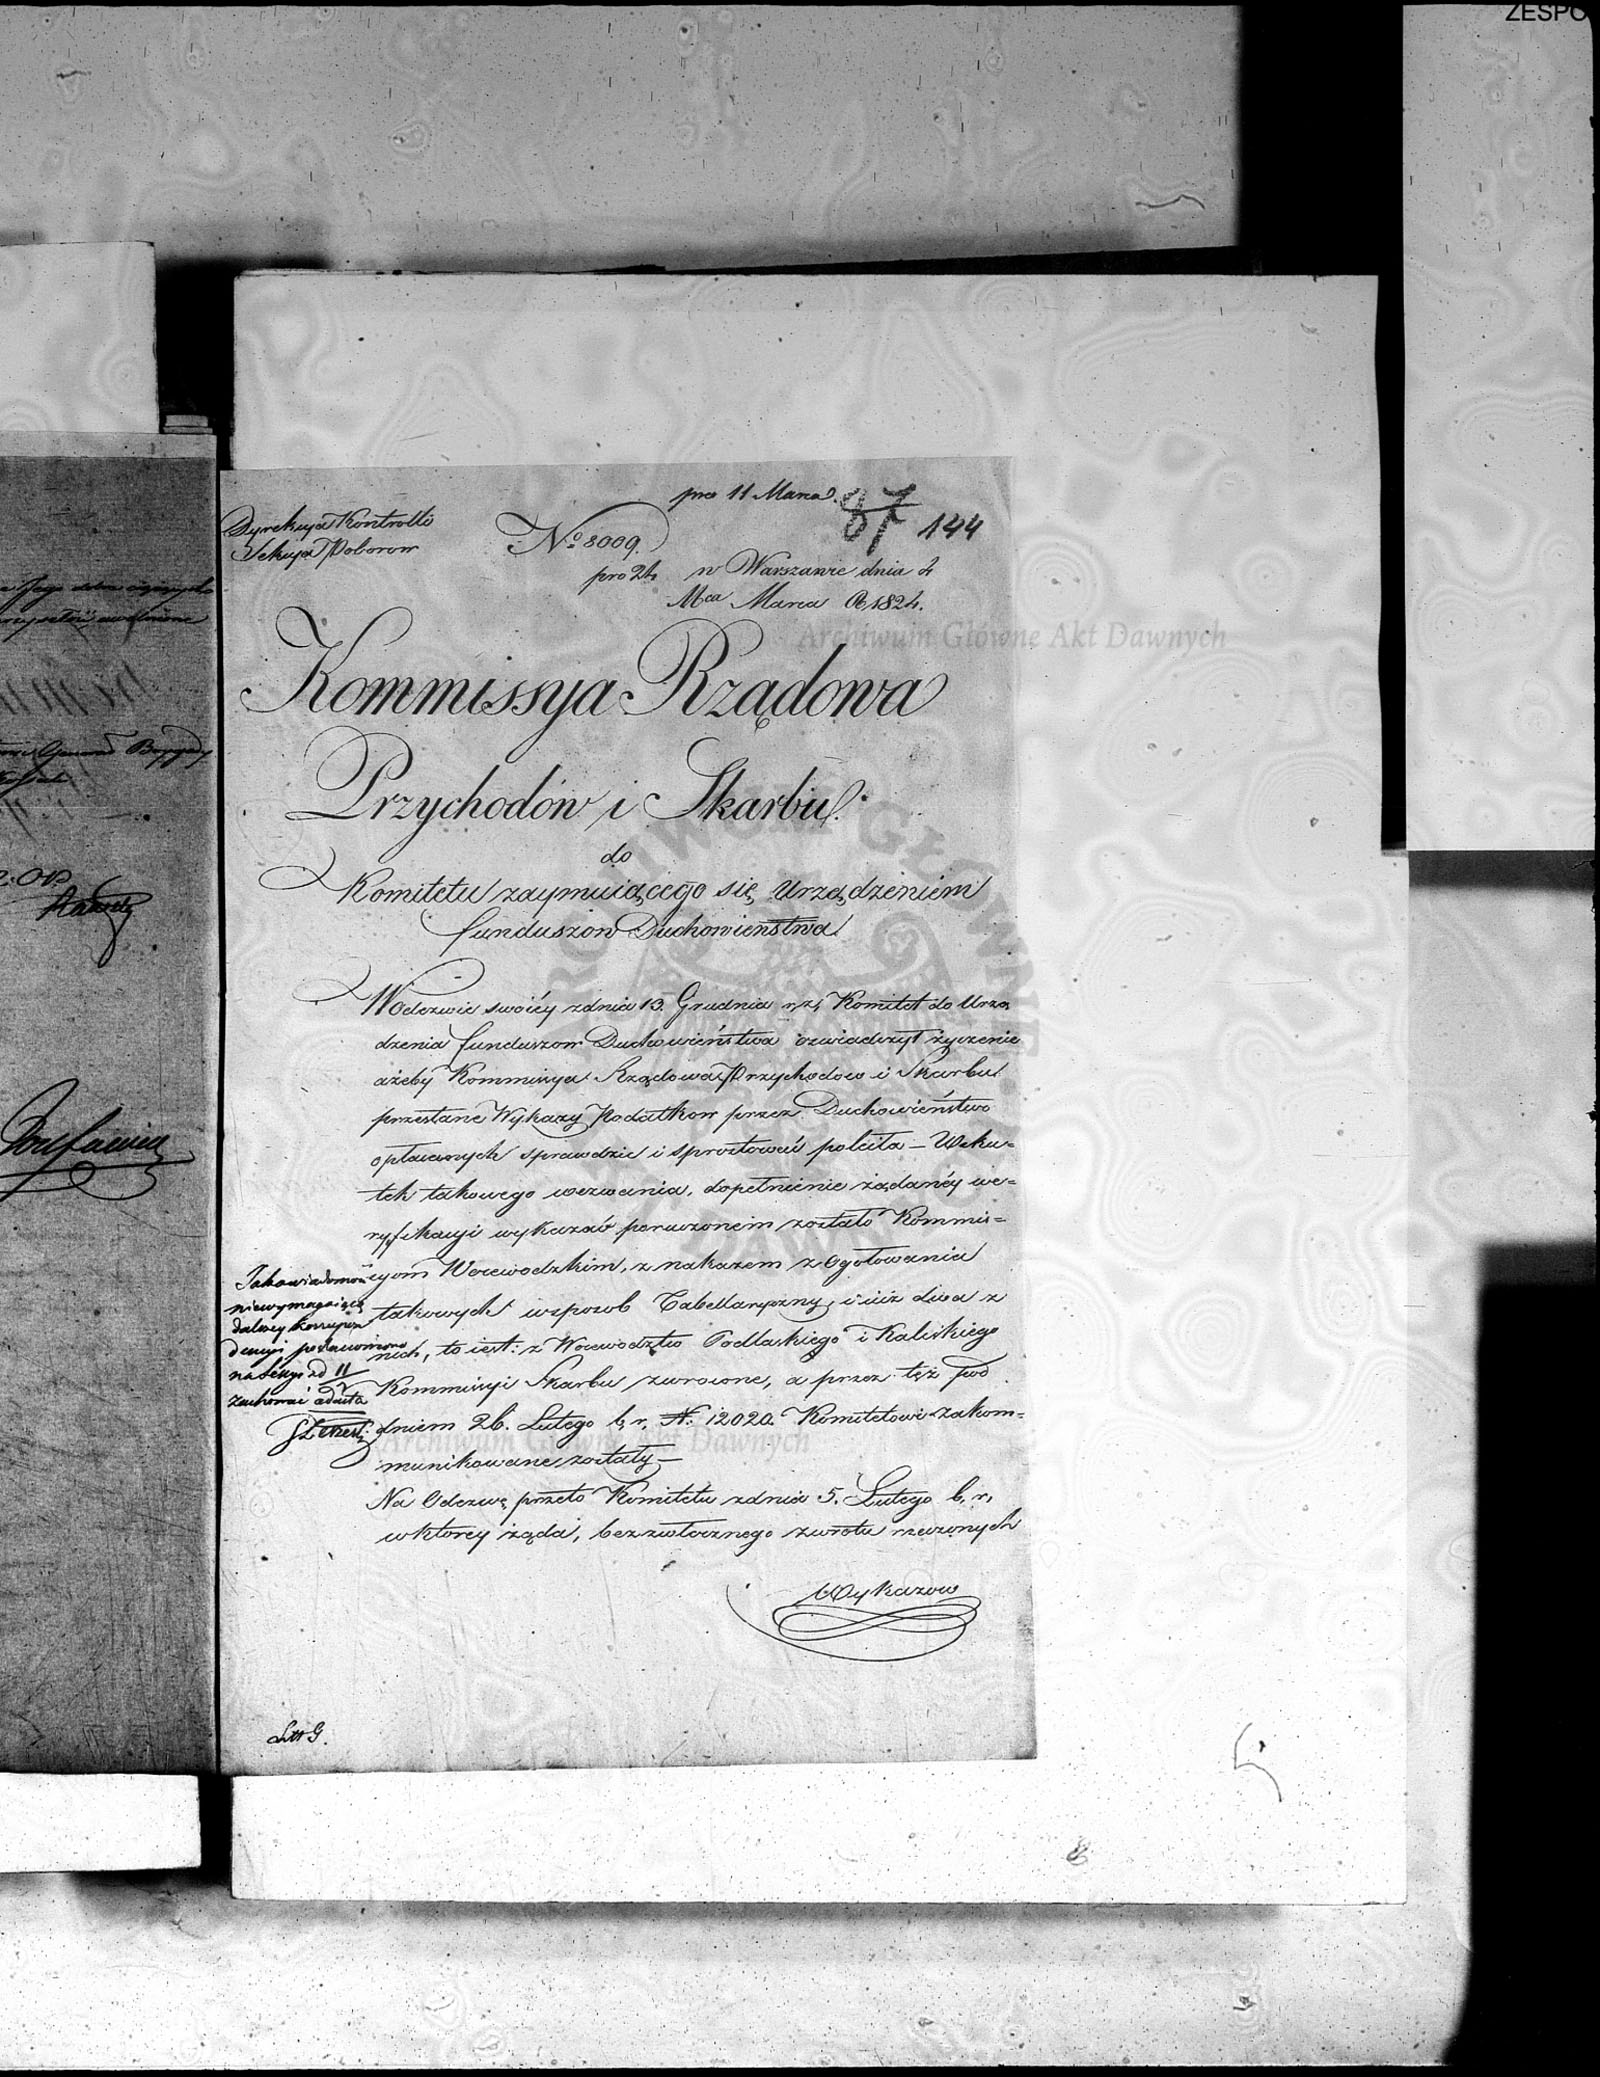 ZESPO
pro 11 Marca
87 144
Dyrekcya Kontrolli
Sekcya Poborow
No 8009.
pro 24
w Warszawie dnia 4
Mca Marca R. 1824.
Archiwum Główne Akt Dawnych
Kommissya Rządowa
Przychodów i Skarbu.
do
Komitetu zaymuiącego się Urządzeniem
funduszow Duchowieństwa
W Odezwie swoiéy z dnia 13. Grudnia r. z. Komitet do Urzą
dzenia funduszow Duchowieństwa oświadczył życzenie
ażeby Kommissya Rządowa Przychodow i Skarbu
przesłane Wykazy Podatkow przez Duchowieństwo
opłacanych sprawdzić i sprostować poleciła – W sku=
tek takowego wezwania, dopełnienie żądanéy we=
ryfikacyi wykazów poruczonem zostało Kommis=
syom Woiewodzkim, z nakazem zgotowania
takowych w sposob Tabellaryczny, i iuż dwa z
nich, to iest: z Woiewodztw Podlaskiego i Kaliskiego
Kommissyi Skarbu zwrocone, a przez też pod
dniem 26. Lutego b. r. N. 12020. Komitetowi zakom=
munikowane zostały –
Na Odezwę przeto Komitetu z dnia 5. Lutego b. r.
w ktorey żąda, bezzwłocznego zwrotu rzeczonych
Wykazow
Jako wiadomość
niewymagaiącą
dalszey korrespon
dencyi postanowiono
na Sessyi zd 11
zachować ad acta
Archiwum Główne Akt Dawnych
Litt G.